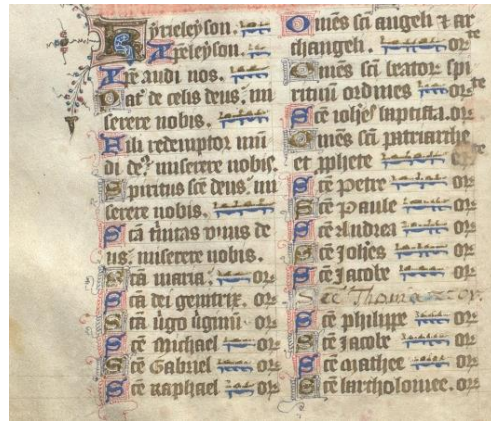 Kyrieleyson.
Xpeleyson.
Xpe audi nos.
Pat de celis deus. mi
serere nobis.
Fili redemptor mun
di des miserere nobis.
Spiritus sce deus. mi
serere nobis.
Sca trinitas vnus de
us. miserere nobis.
Sca maria. or
Sca dei genitrix. or
Sca virgo virginum or
Sce Michael or
Sce Gabriel or
Sce Raphael or
Omes sci angeli et ar
changeli. orte
Omes sci beator spi
rituum ordines orte
Sce iohes baptista. or
Omes sci patriarche
et prophete orte
Sce Petre or
Sce Paule or
Sce Andrea or
Sce Johes or
Sce Jacobe or
Sce Thoma or.
Sce philippe or
Sce Jacobe or
Sce Mathee or
Sce bartholomee. or